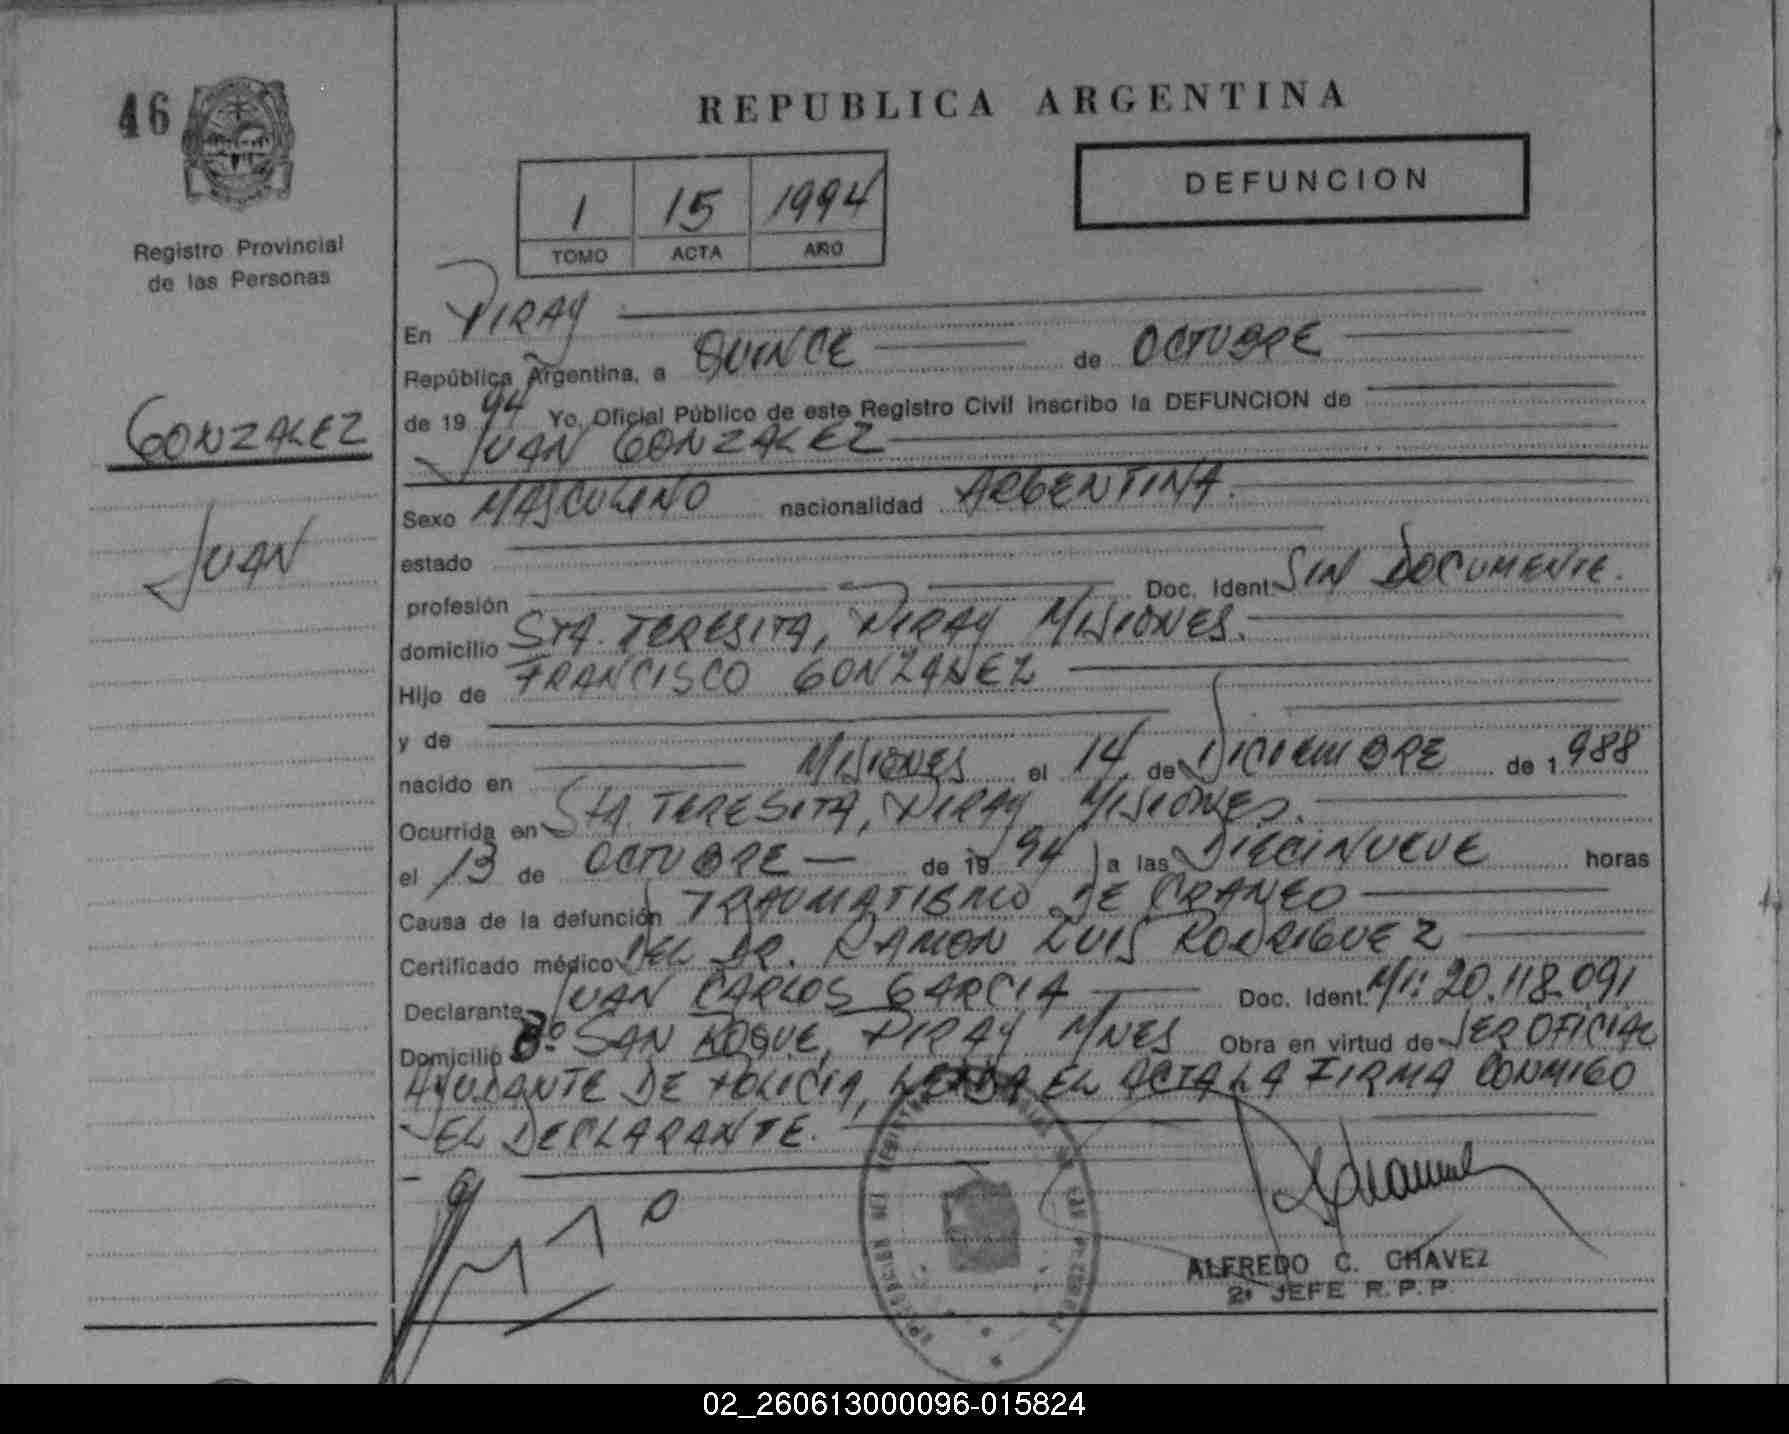 46
REPUBLICA ARGENTINA
DEFUNCION
1 15 1994
TOMO ACTA AÑO
Registro Provincial
de las Personas
En PIRAY
República Argentina, a QUINCE de OCTUBRE
de 19 94 Yo, Oficial Público de este Registro Civil inscribo la DEFUNCION de
JUAN GONZALEZ
GONZALEZ
JUAN
Sexo MASCULINO nacionalidad ARGENTINA.
estado
profesión Doc. Ident. SIN DOCUMENTE.
domicilio STA. TERESITA, PIRAY MISIONES.
Hijo de FRANCISCO GONZALEZ
y de
nacido en MISIONES el 14 de DICIEMBRE de 1 988
Ocurrida en STA. TERESITA, PIRAY MISIONES.
el 13 de OCTUBRE de 19 94 a las DIECINUEVE horas
Causa de la defunción TRAUMATISMO DE CRANEO
Certificado médico DEL DR. RAMON LUIS RODRIGUEZ
Declarante JUAN CARLOS GARCIA Doc. Ident. M/I: 20.118.091
Domicilio Bº SAN ROQUE, PIRAY MNES Obra en virtud de SER OFICIAL
AYUDANTE DE POLICIA, LEIDA EL ACTA LA FIRMA CONMIGO
EL DECLARANTE.
ALFREDO C. CHAVEZ
2º JEFE R.P.P.
02_260613000096-015824